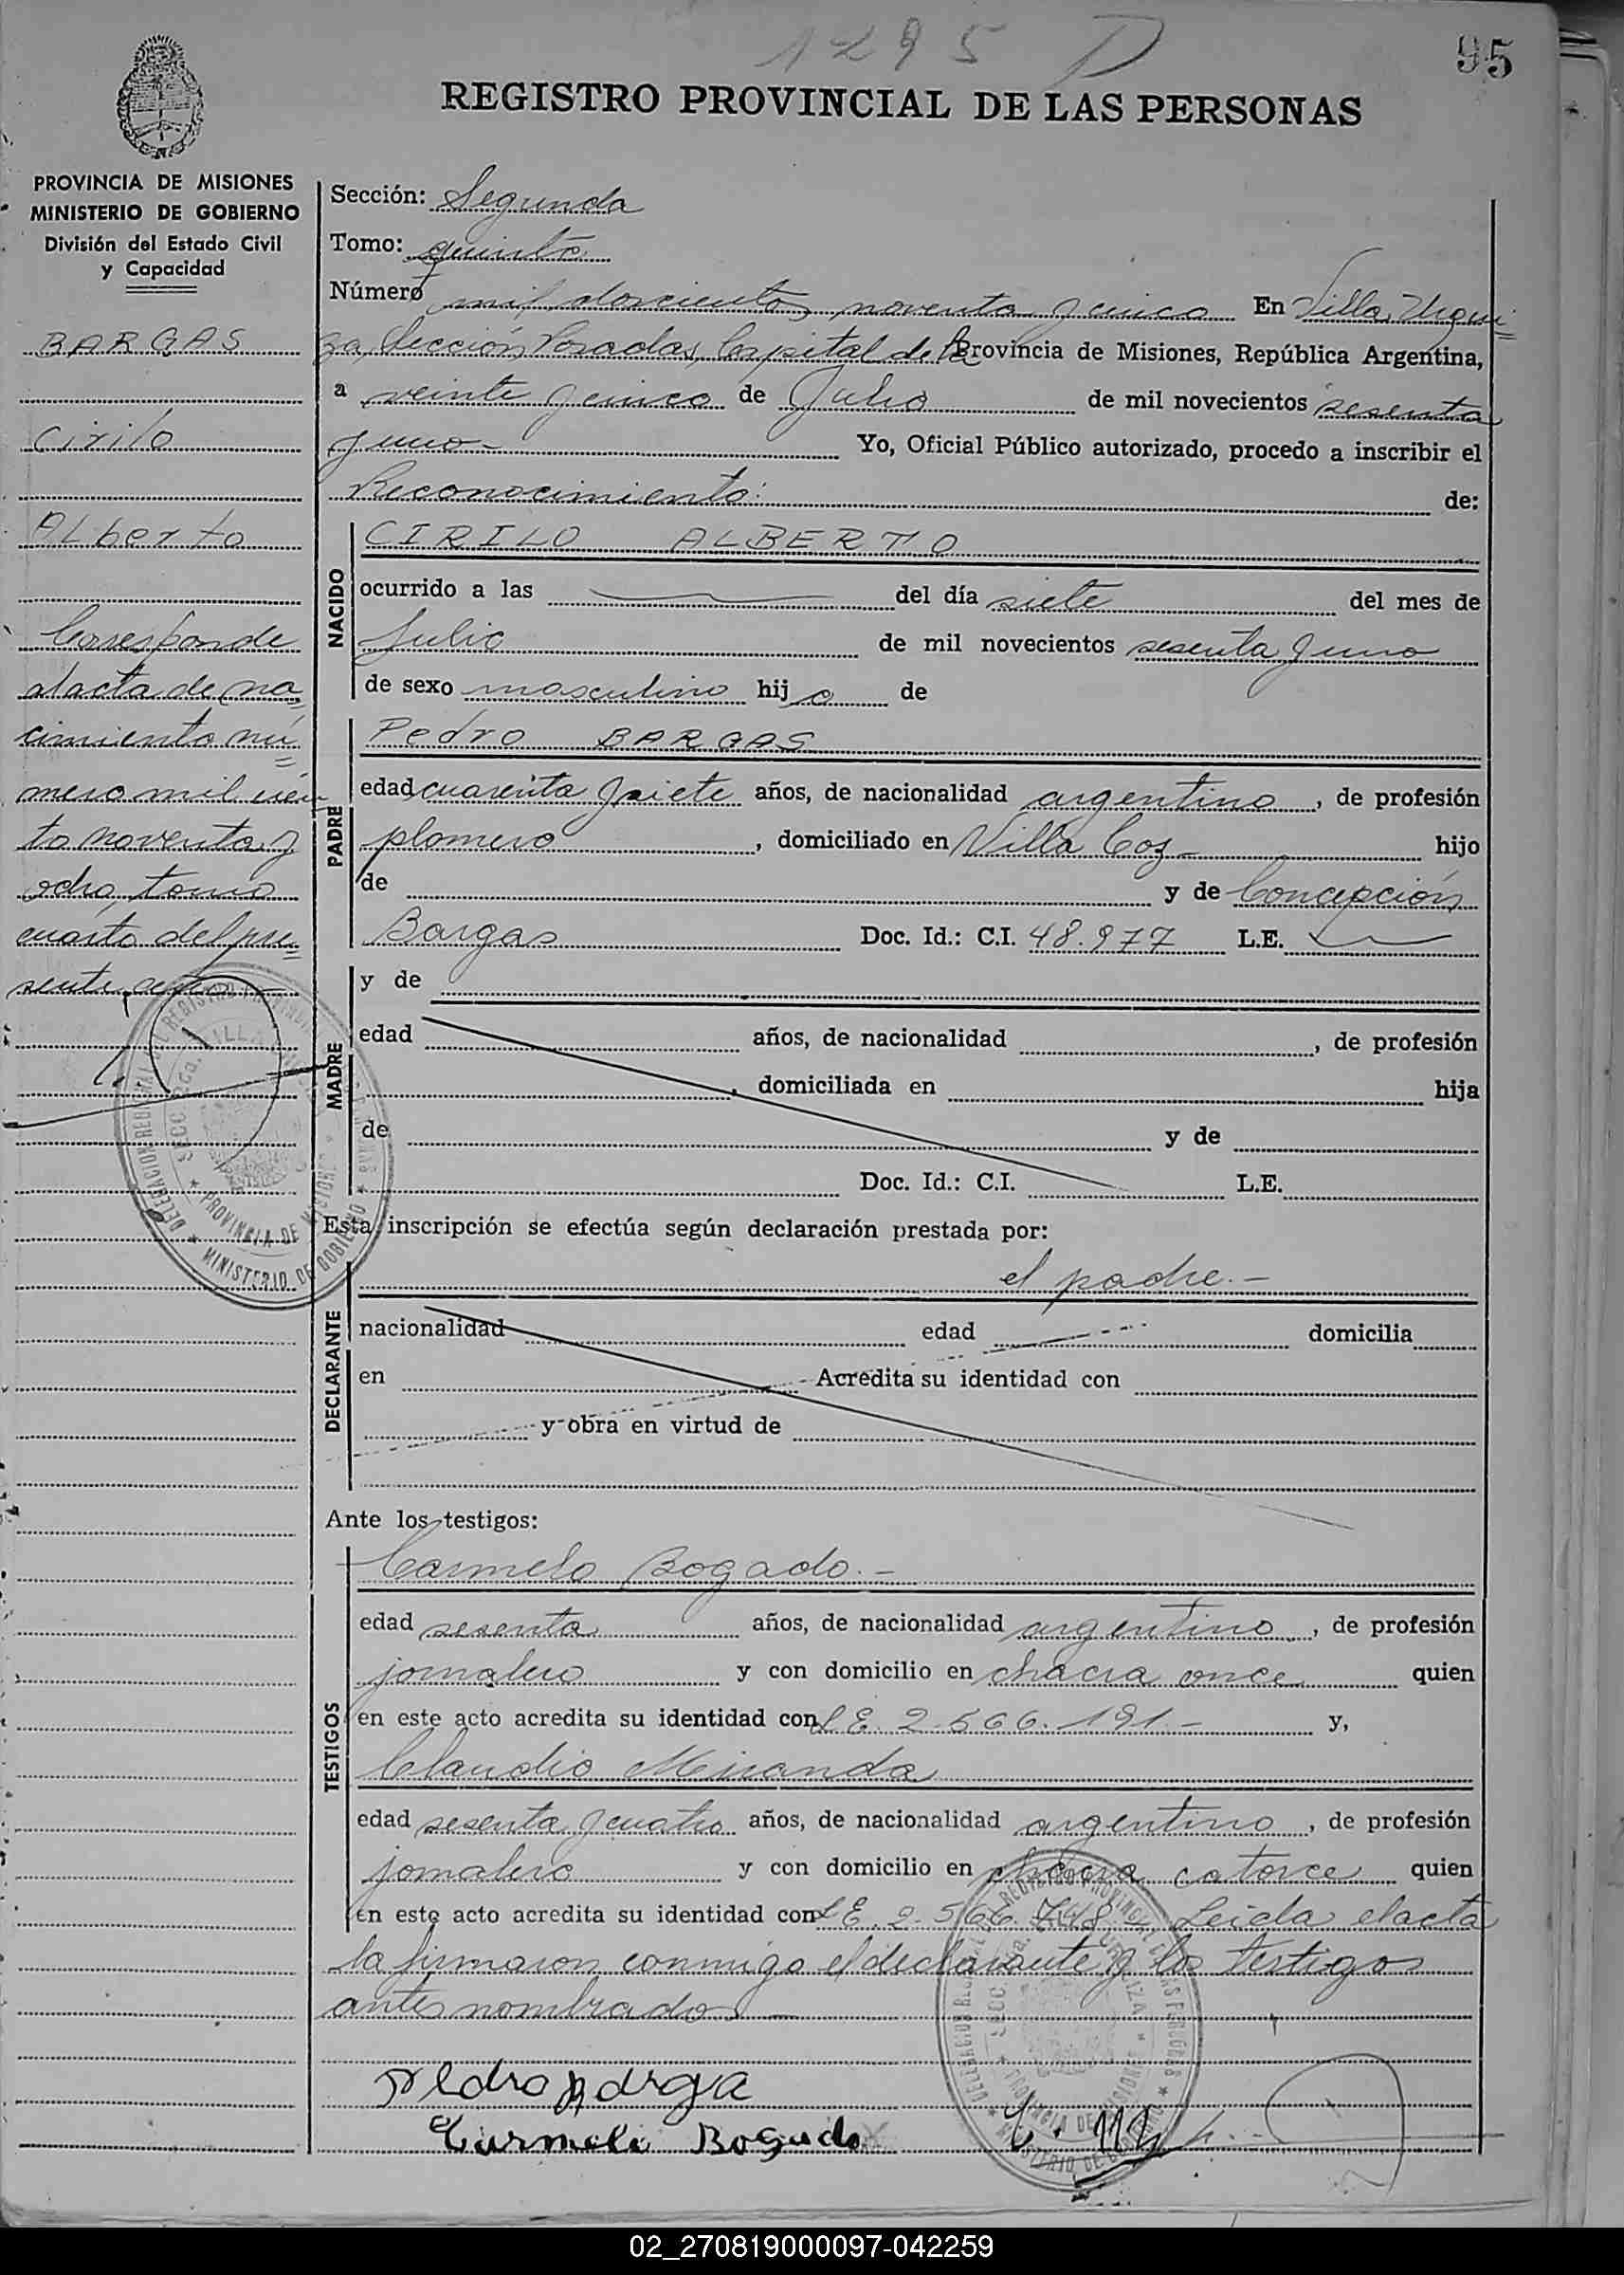 1295 D
95
REGISTRO PROVINCIAL DE LAS PERSONAS
PROVINCIA DE MISIONES
MINISTERIO DE GOBIERNO
División del Estado Civil
y Capacidad
BARGAS
Cirilo
ALberto
Corresponde
al acta de na=
cimiento nú=
mero mil cien
to noventa y
ocho, tomo
cuarto del pre=
sente año
Sección: Segunda
Tomo: quinto
Número mil doscientos noventa y cinco En Villa Urqui=
za, Sección Posadas, Capital de la Provincia de Misiones, República Argentina,
a veinte y cinco de Julio de mil novecientos sesenta
y uno - Yo, Oficial Público autorizado, procedo a inscribir el
Reconocimiento: de:
NACIDO
CIRILO ALBERTO
ocurrido a las del día siete del mes de
Julio de mil novecientos sesenta y uno
de sexo masculino hijo de
PADRE
Pedro BARGAS
edad cuarenta y siete años, de nacionalidad argentino, de profesión
plomero, domiciliado en Villa Coz - hijo
de y de Concepción
Bargas Doc. Id.: C.I. 48.977 L.E.
MADRE
y de
edad años, de nacionalidad , de profesión
, domiciliada en hija
de y de
Doc. Id.: C.I. L.E.
Esta inscripción se efectúa según declaración prestada por:
el padre. -
DECLARANTE
nacionalidad edad domicilia
en Acredita su identidad con
y obra en virtud de
Ante los testigos:
TESTIGOS
Carmelo Bogado. -
edad sesenta años, de nacionalidad argentino, de profesión
jornalero y con domicilio en chacra once quien
en este acto acredita su identidad con L E. 2.566.191. - y,
Claudio Miranda
edad sesenta y cuatro años, de nacionalidad argentino, de profesión
jornalero y con domicilio en chacra catorce quien
en este acto acredita su identidad con L E. 2.566.748 - Leida el acta
la firmaron conmigo el declarante y los testigos
antes nombrados -
Carmelo Bogado
02_270819000097-042259